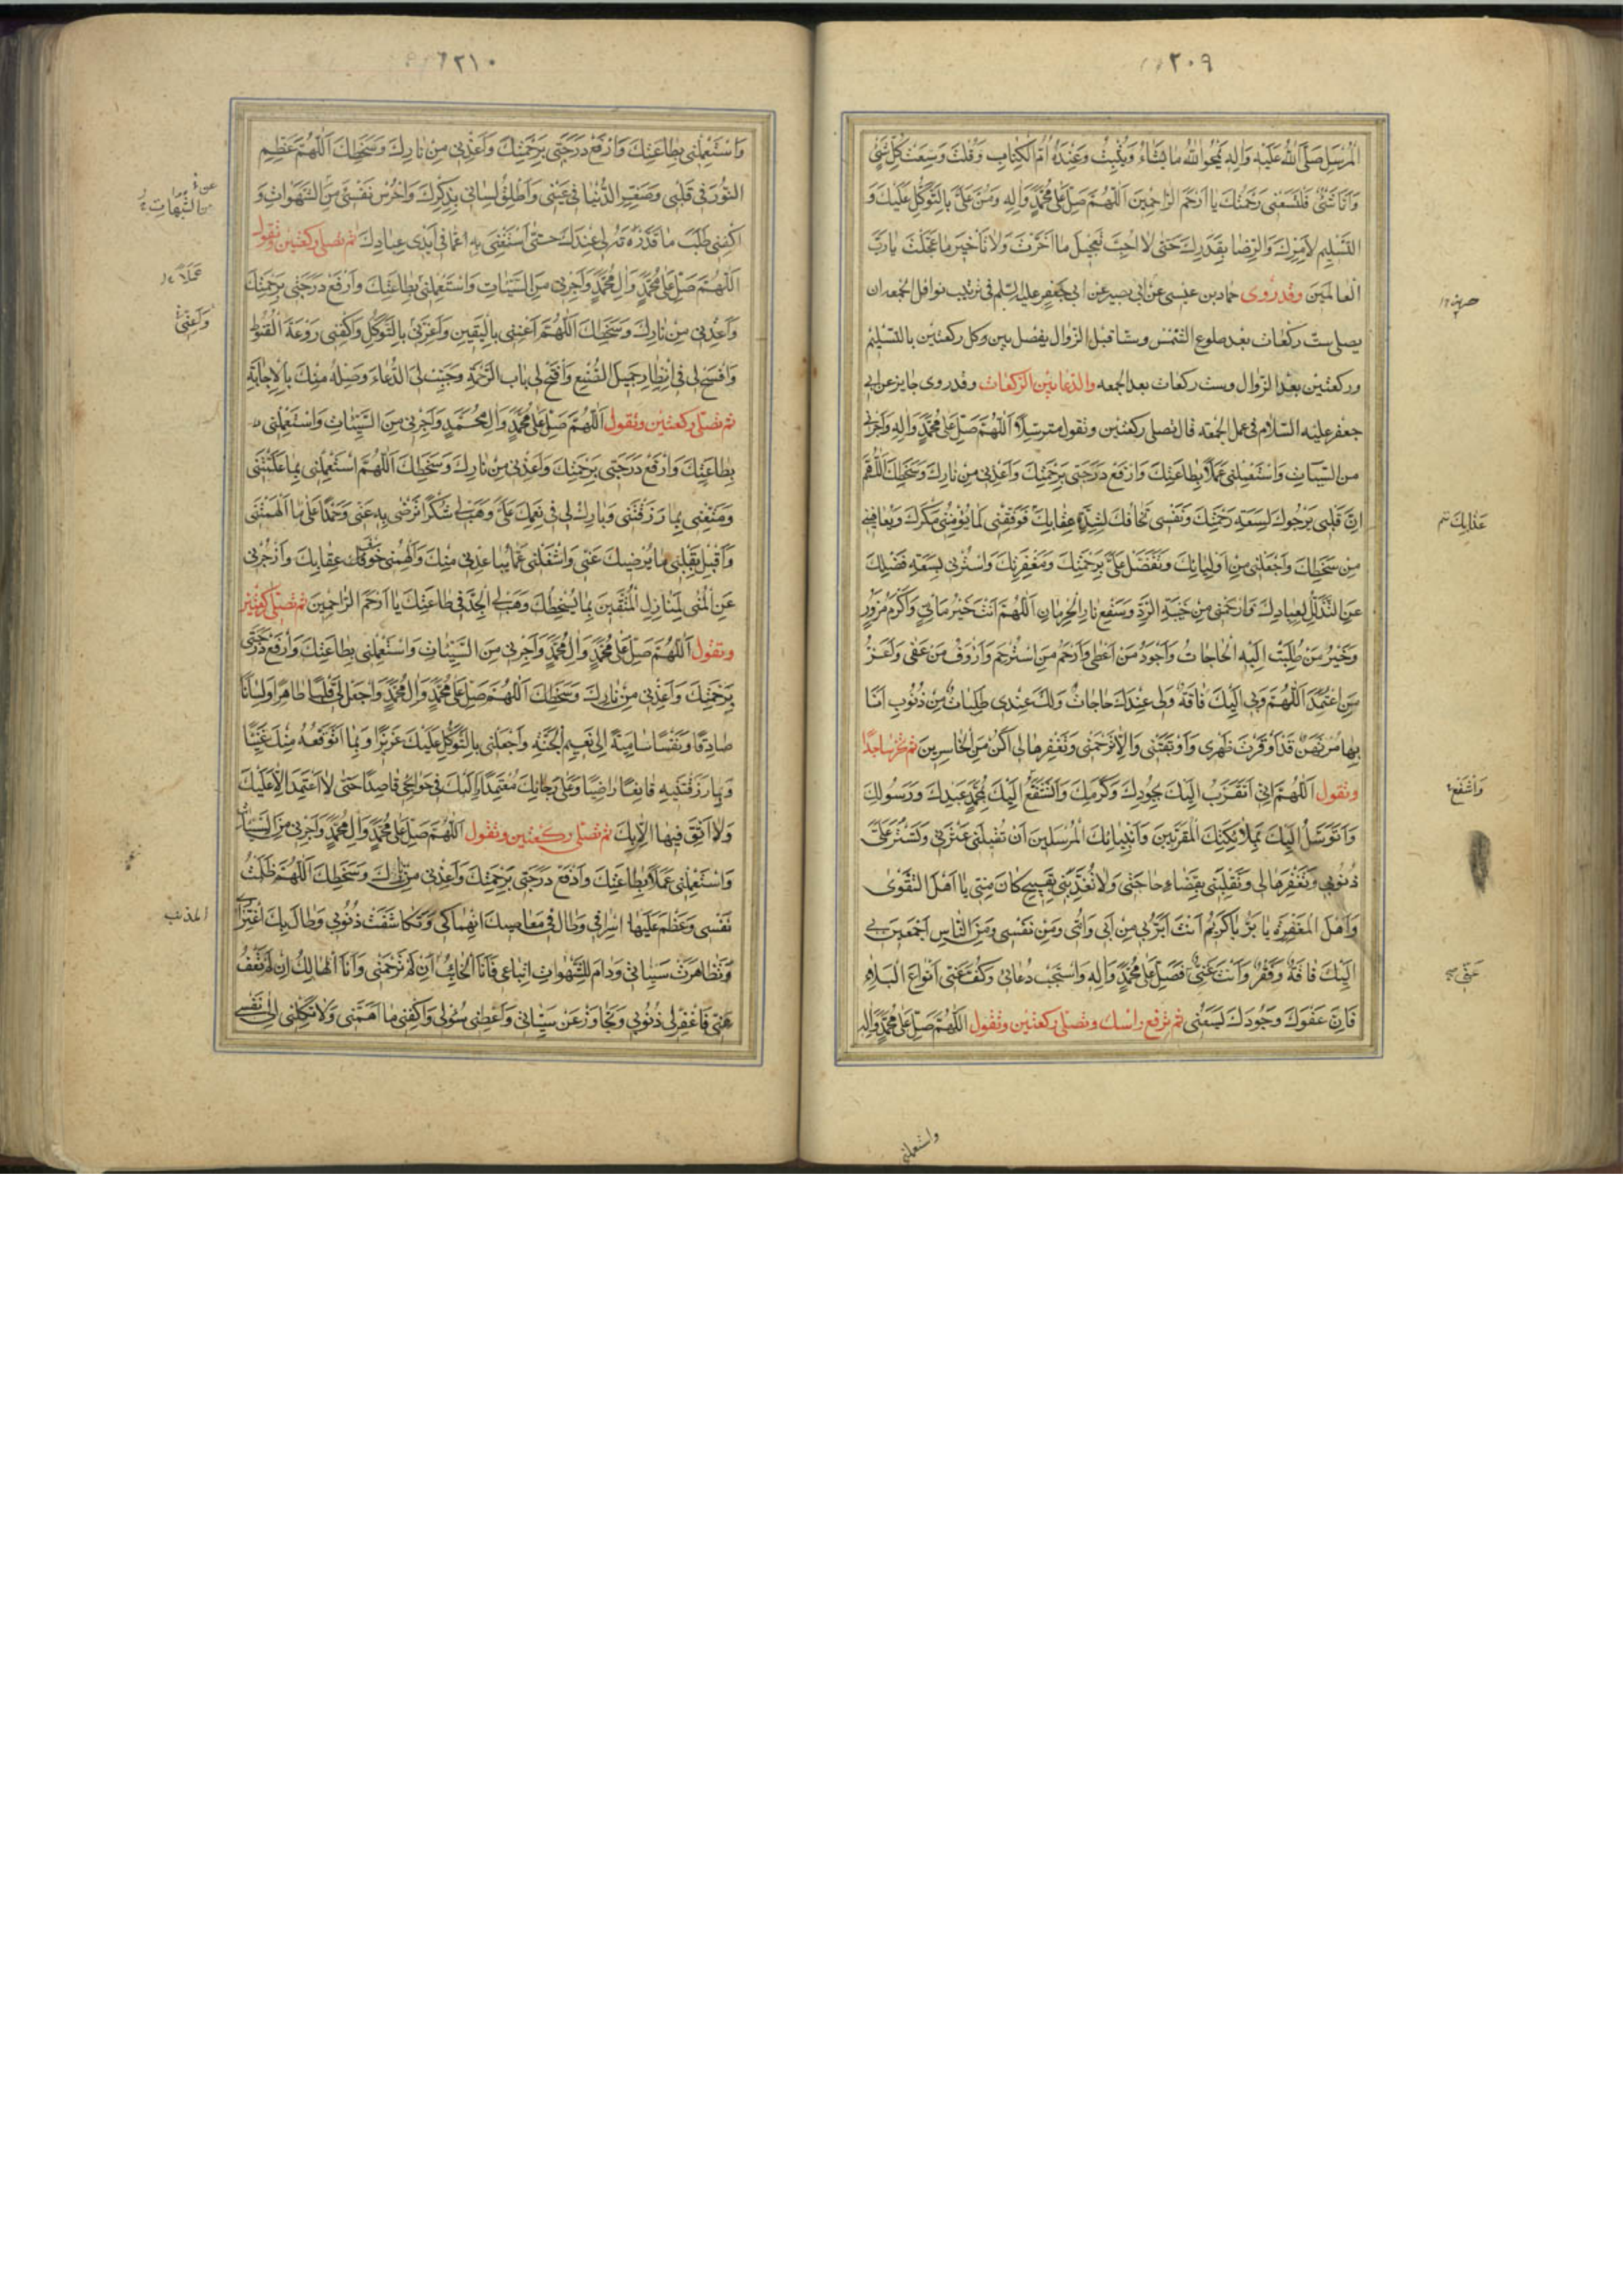 ٢٠٩
المُرْسَلِ صَلَّى اللهُ عَلَيْهِ وَالِهِ يَمْحُوا اللهُ مَا يَشَاءُ وَيُثْبِتُ وَعِنْدَهُ اُمُّ الْكِتَابِ وَقُلْتَ وَسِعَتْ كُلَّ شَيْءٍ
وَاَنَا شَيْءٌ فَلْتَسَعْنِي رَحْمَتُكَ يَا اَرْحَمَ الرَّاحِمِينَ اَللّٰهُمَّ صَلِّ عَلَى مُحَمَّدٍ وَالِهِ وَمُنَّ عَلَيَّ بِالتَّوَكُّلِ عَلَيْكَ وَ
التَّسْلِيمِ لِاَمْرِكَ وَالرِّضَا بِقَدَرِكَ حَتّٰى لَا اُحِبَّ تَعْجِيلَ مَا اَخَّرْتَ وَلَا تَأْخِيرَ مَا عَجَّلْتَ يَا رَبَّ
الْعَالَمِينَ وقد رُوى حماد بن عيسى عن ابى بصير عن ابى جعفر عليه السّلم فى ترتيب نوافل الجمعه ان
يصلى ستّ ركعات بعد طلوع الشّمس وستّا قبل الزّوال يفصل بين كل ركعتين بالتّسليم
وركعتين بعد الزّوال وست ركعات بعد الجمعه والدّعا بين الرّكعات وقد روى جابر عن ابى
جعفر عليه السّلام فى عمل الجمعة قال تصلى ركعتين وتقول مترسّلًا اَللّٰهُمَّ صَلِّ عَلَى مُحَمَّدٍ وَالِهِ وَاَجِرْنِي
من السَّيِّئاتِ وَاسْتَعْمِلْنِي عَمَلًا بِطَاعَتِكَ وَارْفَعْ دَرَجَتِي بِرَحْمَتِكَ وَاَعِذْنِي مِنْ نَارِكَ وَسَخَطِكَ اَللّٰهُمَّ
اِنَّ قَلْبِي يَرْجُوكَ لِسَعَةِ رَحْمَتِكَ وَنَفْسِي تَخَافُكَ لِشِدَّةِ عِقَابِكَ فَوَفِّقْنِي لِمَا يُؤْمِنُنِي مَكْرَكَ وَيُعَافِينِي
مِنْ سَخَطِكَ وَاجْعَلْنِي مِنْ اَوْلِيَائِكَ وَتَفَضَّلْ عَلَيَّ بِرَحْمَتِكَ وَمَغْفِرَتِكَ وَاسْتُرْنِي بِسَعَةِ فَضْلِكَ
عَنِ التَّذَلُّلِ لِعِبَادِكَ وَارْحَمْنِي مِنْ خَيْبَةِ الرَّدِّ وَسَفْعِ نَارِ الْحِرْمَانِ اَللّٰهُمَّ اَنْتَ خَيْرُ مَأْتِيٍّ وَاَكْرَمُ مَزُورٍ
وَخَيْرُ مَنْ طُلِبَتْ اِلَيْهِ الْحَاجَاتُ وَاَجْوَدُ مَنْ اَعْطٰى وَاَرْحَمُ مَنِ اسْتُرْحِمَ وَاَرْوَفُ مَنْ عَفٰى وَاَعَزُّ
مَنِ اعْتُمِدَ اَللّٰهُمَّ وَبِي اِلَيْكَ فَاقَةٌ وَلِي عِنْدَكَ حَاجَاتٌ وَلَكَ عِنْدِي طَلِبَاتٌ مِنْ ذُنُوبٍ اَنَا
بِهَا مُرْتَهَنٌ قَدْ اَوْقَرَتْ ظَهْرِي وَاَوْبَقَتْنِي وَاِلَّا تَرْحَمْنِي وَتَغْفِرْهَا لِي اَكُنْ مِنَ الْخَاسِرِينَ ثم تخرّ ساجدًا
وتقول اَللّٰهُمَّ اِنِّي اَتَقَرَّبُ اِلَيْكَ بِجُودِكَ وَكَرَمِكَ وَاَتَشَفَّعُ اِلَيْكَ بِمُحَمَّدٍ عَبْدِكَ وَرَسُولِكَ
وَاَتَوَسَّلُ اِلَيْكَ بِمَلَائِكَتِكَ الْمُقَرَّبِينَ وَاَنْبِيَائِكَ الْمُرْسَلِينَ اَنْ تُقِيلَنِي عَثْرَتِي وَتَسْتُرَ عَلَيَّ
ذُنُوبِي وَتَغْفِرَهَا لِي وَتَقْلِبَنِي بِقَضَاءِ حَاجَتِي وَلَا تُعَذِّبَنِي بِقَبِيحٍ كَانَ مِنِّي يَا اَهْلَ التَّقْوٰى
وَاَهْلَ الْمَغْفِرَةِ يَا بَرُّ يَا كَرِيمُ اَنْتَ اَبَرُّ بِي مِنْ اَبِي وَاُمِّي وَمِنْ نَفْسِي وَمِنَ النَّاسِ اَجْمَعِينَ بِي
اِلَيْكَ فَاقَةٌ وَفَقْرٌ وَاَنْتَ غَنِيٌّ عَنِّي فَصَلِّ عَلَى مُحَمَّدٍ وَالِهِ وَاسْتَجِبْ دُعَائِي وَكُفَّ عَنِّي اَنْوَاعَ الْبَلَاءِ
فَاِنَّ عَفْوَكَ وَجُودَكَ يَسَعُنِي ثم ترفع راسك وتصلّى ركعتين وتقول اَللّٰهُمَّ صَلِّ عَلَى مُحَمَّدٍ وَالِهِ
عَذَابِكَ
وَاَتَشَفَّعُ
واستعملنى
٢١٠
وَاسْتَعْمِلْنِي بِطَاعَتِكَ وَارْفَعْ دَرَجَتِي بِرَحْمَتِكَ وَاَعِذْنِي مِنْ نَارِكَ وَسَخَطِكَ اَللّٰهُمَّ عَظِّمِ
النُّورَ فِي قَلْبِي وَصَغِّرِ الدُّنْيَا فِي عَيْنِي وَاَطْلِقْ لِسَانِي بِذِكْرِكَ وَاحْرُسْ نَفْسِي مِنَ الشَّهَوَاتِ وَ
اكْفِنِي طَلَبَ مَا قَدَّرْتَهُ لِي عِنْدَكَ حَتّٰى اَسْتَغْنِيَ بِهِ عَمَّا فِي اَيْدِي عِبَادِكَ ثم تصلى ركعتين وتقول
اَللّٰهُمَّ صَلِّ عَلَى مُحَمَّدٍ وَالِ مُحَمَّدٍ وَاَجِرْنِي مِنَ السَّيِّئَاتِ وَاسْتَعْمِلْنِي بِطَاعَتِكَ وَارْفَعْ دَرَجَتِي بِرَحْمَتِكَ
وَاَعِذْنِي مِنْ نَارِكَ وَسَخَطِكَ اَللّٰهُمَّ اَغْنِنِي بِالْيَقِينِ وَاَعِزَّنِي بِالتَّوَكُّلِ وَاكْفِنِي رَوْعَةَ الْقُنُوطِ
وَافْسَحْ لِي فِي انْتِظَارِ جَمِيلِ الصُّنْعِ وَافْتَحْ لِي بَابَ الرَّحْمَةِ وَحَبِّبْ لِيَ الدُّعَاءَ وَصِلْهُ مِنْكَ بِالْاِجَابَةِ
ثم تصلى ركعتين وتقول اَللّٰهُمَّ صَلِّ عَلَى مُحَمَّدٍ وَالِ مُحَمَّدٍ وَاَجِرْنِي مِنَ السَّيِّئَاتِ وَاسْتَعْمِلْنِي
بِطَاعَتِكَ وَارْفَعْ دَرَجَتِي بِرَحْمَتِكَ وَاَعِذْنِي مِنْ نَارِكَ وَسَخَطِكَ اَللّٰهُمَّ اسْتَعْمِلْنِي بِمَا عَلَّمْتَنِي
وَمَتِّعْنِي بِمَا رَزَقْتَنِي وَبَارِكْ لِي فِي نِعَمِكَ عَلَيَّ وَهَبْ لِي شُكْرًا تَرْضٰى بِهِ عَنِّي وَحَمْدًا عَلَى مَا اَلْهَمْتَنِي
وَاَقْبِلْ بِقَلْبِي مَا يُرْضِيكَ عَنِّي وَاشْغَلْنِي عَمَّا يُبَاعِدُنِي مِنْكَ وَاَلْهِمْنِي خَوْفَ عِقَابِكَ وَازْجُرْنِي
عَنِ الْمُنٰى لِمَنَازِلِ الْمُتَّقِينَ بِمَا يُسْخِطُكَ وَهَبْ لِيَ الْجِدَّ فِي طَاعَتِكَ يَا اَرْحَمَ الرَّاحِمِينَ ثم تصلّى ركعتين
وتقول اَللّٰهُمَّ صَلِّ عَلَى مُحَمَّدٍ وَالِ مُحَمَّدٍ وَاَجِرْنِي مِنَ السَّيِّئَاتِ وَاسْتَعْمِلْنِي بِطَاعَتِكَ وَارْفَعْ دَرَجَتِي
بِرَحْمَتِكَ وَاَعِذْنِي مِنْ نَارِكَ وَسَخَطِكَ اَللّٰهُمَّ صَلِّ عَلَى مُحَمَّدٍ وَالِ مُحَمَّدٍ وَاجْعَلْ لِي قَلْبًا طَاهِرًا وَلِسَانًا
صَادِقًا وَنَفْسًا سَامِيَةً اِلَى نَعِيمِ الْجَنَّةِ وَاجْعَلْنِي بِالتَّوَكُّلِ عَلَيْكَ عَزِيزًا وَبِمَا اَتَوَقَّعُهُ مِنْكَ غَنِيًّا
وَبِمَا رَزَقْتَنِيهِ قَانِعًا رَاضِيًا وَعَلَى رَجَائِكَ مُعْتَمِدًا وَاِلَيْكَ فِي حَوَائِجِي قَاصِدًا حَتّٰى لَا اَعْتَمِدَ اِلَّا عَلَيْكَ
وَلَا اَثِقَ فِيهَا اِلَّا بِكَ ثم تصلى ركعتين وتقول اَللّٰهُمَّ صَلِّ عَلَى مُحَمَّدٍ وَالِ مُحَمَّدٍ وَاَجِرْنِي مِنَ السَّيِّئَاتِ
وَاسْتَعْمِلْنِي عَمَلًا بِطَاعَتِكَ وَارْفَعْ دَرَجَتِي بِرَحْمَتِكَ وَاَعِذْنِي مِنْ نَارِكَ وَسَخَطِكَ اَللّٰهُمَّ ظَلَمْتُ
نَفْسِي وَعَظُمَ عَلَيْهَا اِسْرَافِي وَطَالَ فِي مَعَاصِيكَ انْهِمَاكِي وَتَكَاثَفَتْ ذُنُوبِي وَطَالَ بِكَ اغْتِرَارِي
وَتَظَاهَرَتْ سَيِّئَاتِي وَدَامَ لِلشَّهَوَاتِ اتِّبَاعِي فَاَنَا الْخَائِبُ اِنْ لَمْ تَرْحَمْنِي وَاَنَا الْهَالِكُ اِنْ لَمْ تَعْفُ
عَنِّي فَاغْفِرْ لِي ذُنُوبِي وَتَجَاوَزْ عَنْ سَيِّئَاتِي وَاَعْطِنِي سُؤْلِي وَاكْفِنِي مَا اَهَمَّنِي وَلَا تَكِلْنِي اِلَى نَفْسِي
من الشُّبُهَاتِ
عَمَلًا
وَاَعِنِّي